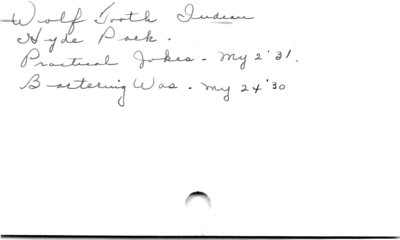 Wolf Tooth Indian
Hyde Park.
Practical Jokes - My 2 '31.
Bantering Was. My 24 '30